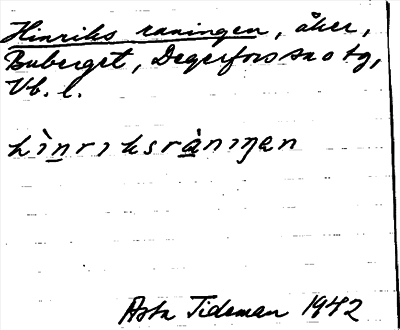 Hinriks raningen, åker,
Buberget, Degerfors sn o tg,
Vb. l.
hìnrıksrànıŋen
Asta Tideman 1942